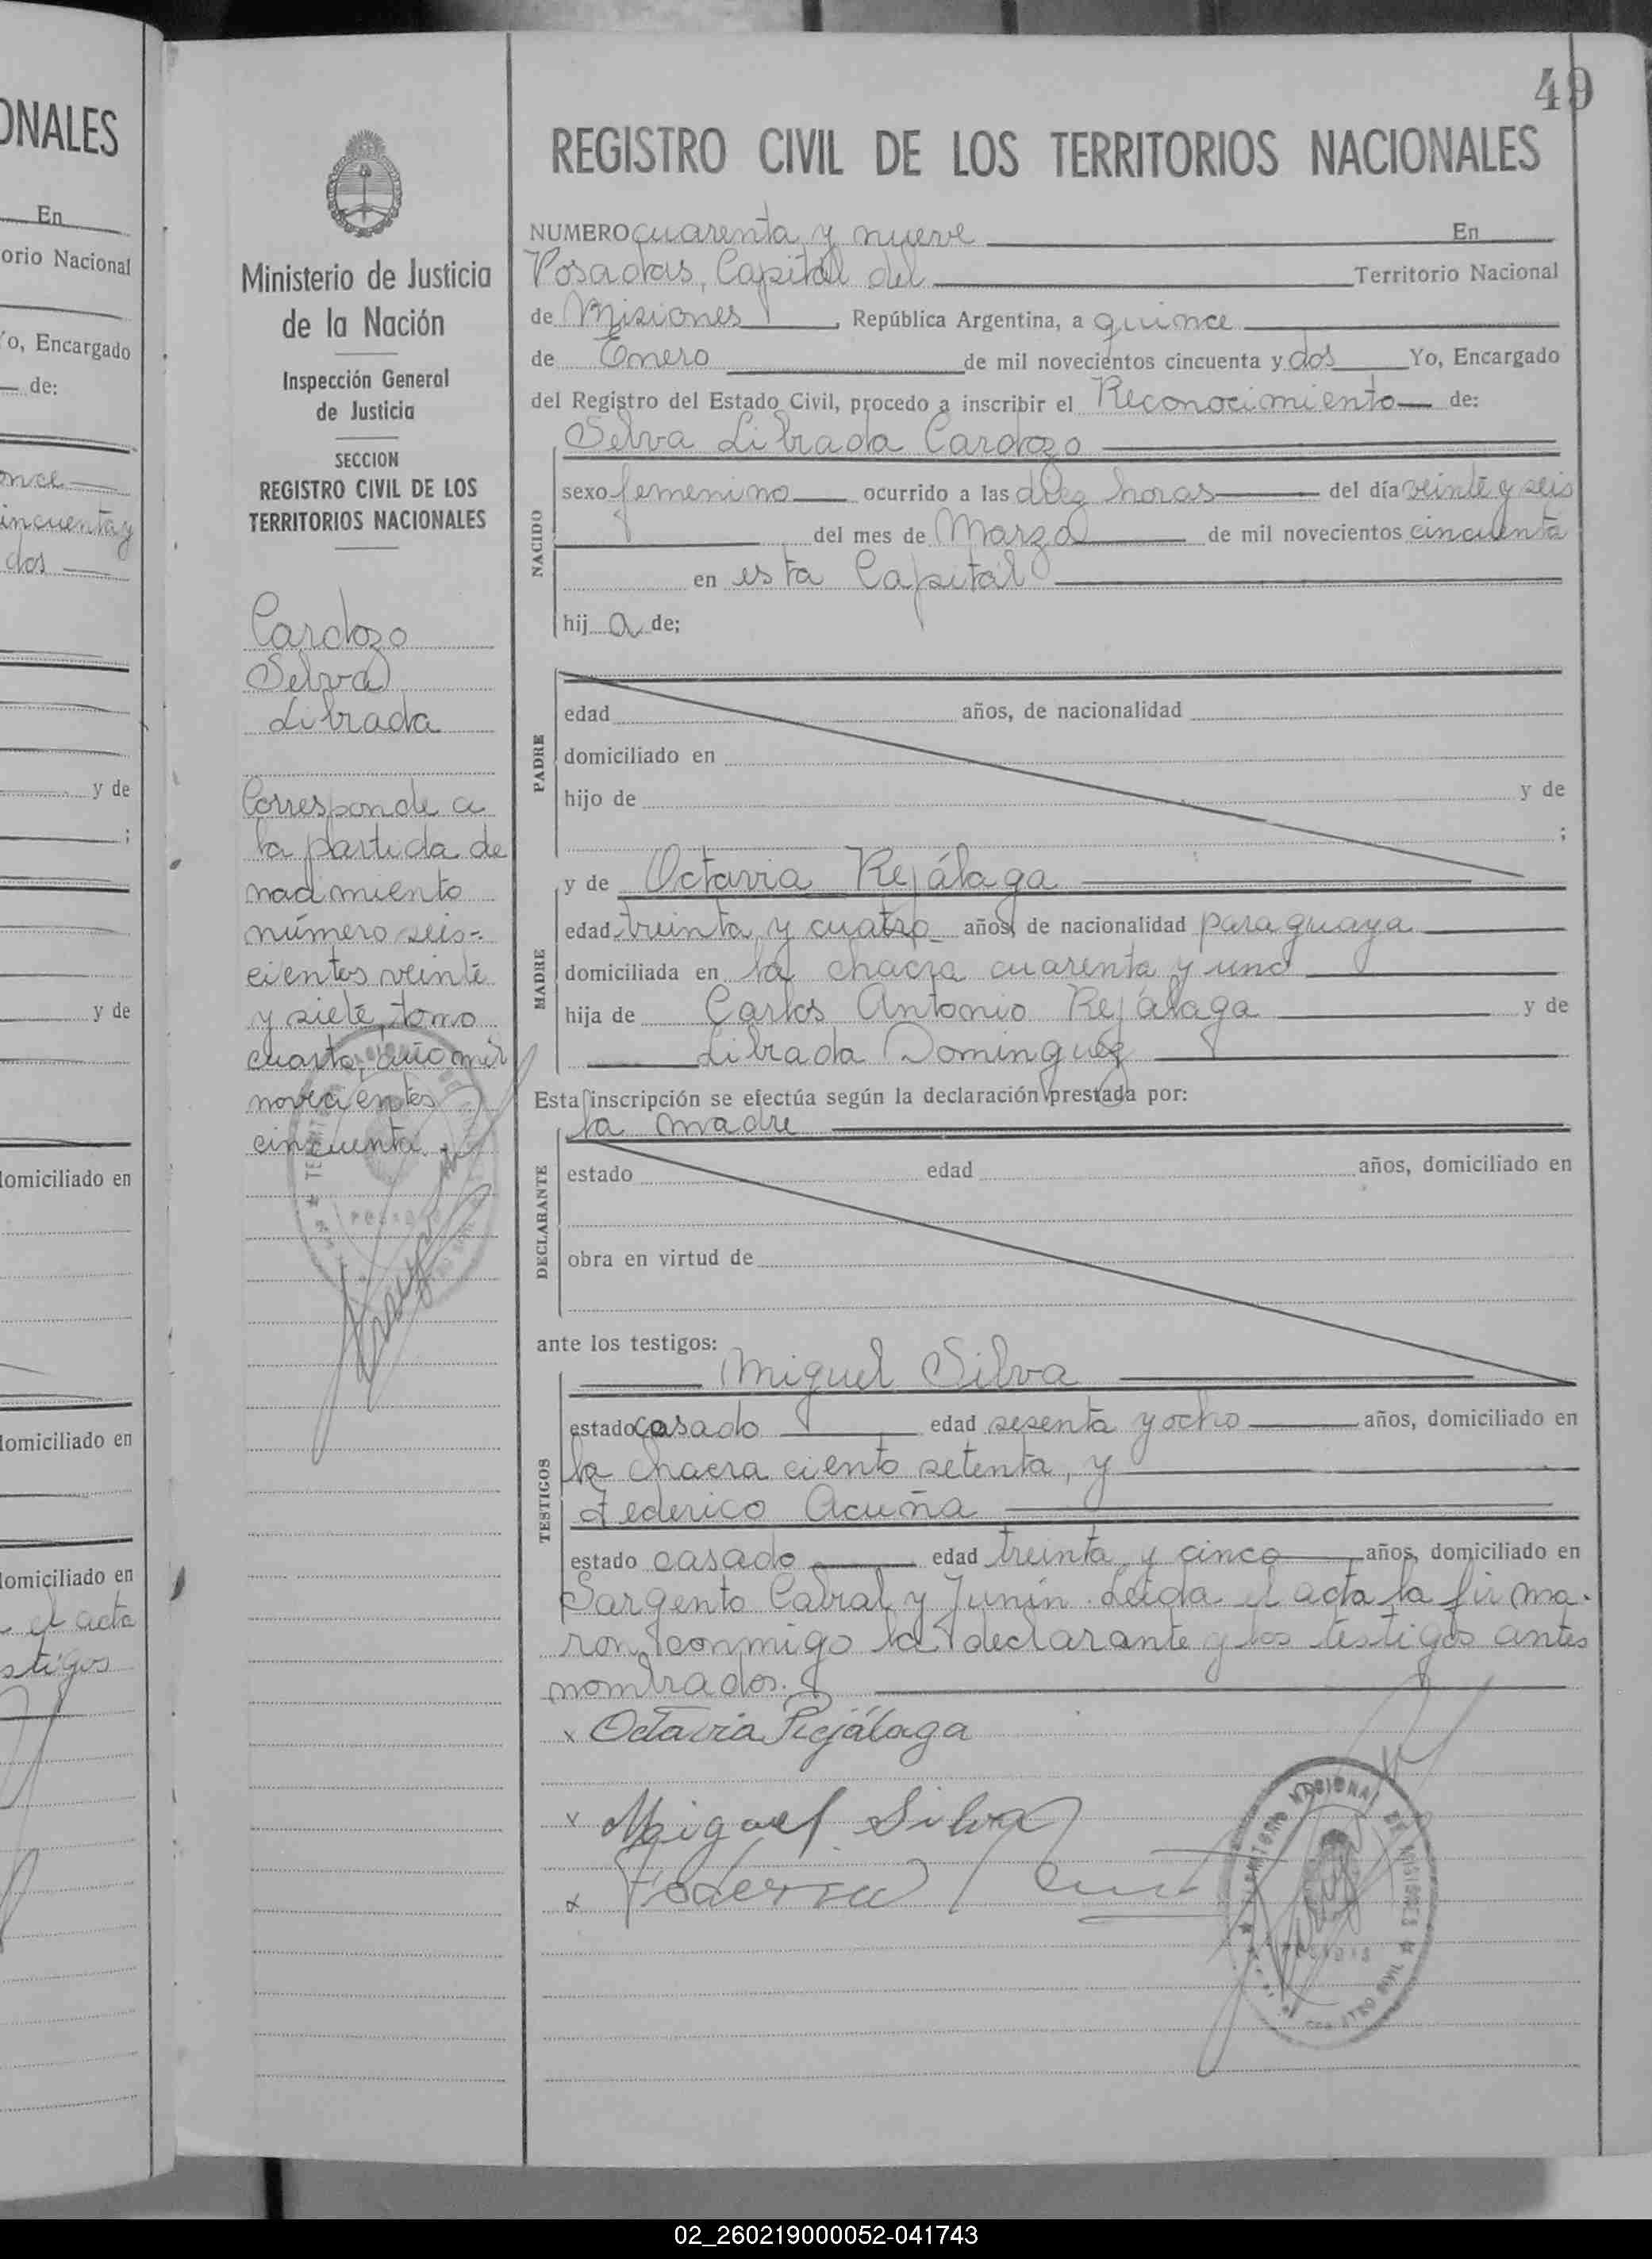 ONALES
En
orio Nacional
Yo, Encargado
de:
once
incuenta y
dos
y de
;
y de
domiciliado en
domiciliado en
domiciliado en
el acta
stigos
Ministerio de Justicia
de la Nación
Inspección General
de Justicia
SECCION
REGISTRO CIVIL DE LOS
TERRITORIOS NACIONALES
Cardozo
Selva
Librada
Corresponde a
la partida de
nacimiento
número seis-
cientos veinte
y siete, tomo
cuarto, año mil
novecientos
cincuenta.
49
REGISTRO CIVIL DE LOS TERRITORIOS NACIONALES
NUMERO cuarenta y nueve En
Posadas, Capital del Territorio Nacional
de Misiones, República Argentina, a quince
de Enero de mil novecientos cincuenta y dos Yo, Encargado
del Registro del Estado Civil, procedo a inscribir el Reconocimiento de:
Selva Librada Cardozo
NACIDO
sexo femenino ocurrido a las diez horas del día veinte y seis
del mes de Marzo de mil novecientos cincuenta
en esta Capital
hij a de;
PADRE
edad años, de nacionalidad
domiciliado en
hijo de y de
;
MADRE
y de Octavia Rejálaga
edad treinta y cuatro años, de nacionalidad paraguaya
domiciliada en la chacra cuarenta y uno
hija de Carlos Antonio Rejálaga y de
Librada Dominguez
Esta inscripción se efectúa según la declaración prestada por:
la madre
DECLARANTE
estado edad años, domiciliado en
obra en virtud de
ante los testigos:
TESTIGOS
Miguel Silva
estado casado edad sesenta y ocho años, domiciliado en
la chacra ciento setenta, y
Federico Acuña
estado casado edad treinta y cinco años, domiciliado en
Sargento Cabral y Junín. Leida el acta la firma-
ron conmigo la declarante y los testigos antes
nombrados.
x Octavia Rejálaga
x Miguel Silva
x Federico
TERRITORIO NACIONAL DE MISIONES
POSADAS
REGISTRO CIVIL
02_260219000052-041743